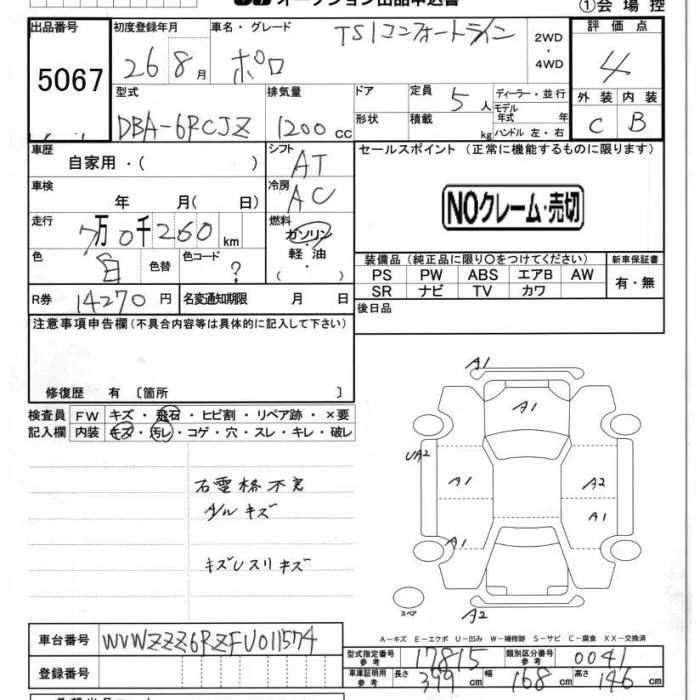 オークション出品申込書
①会場控
出品番号 初度登録年月 車名・グレード TSIコンフォートライン 2WD・4WD 評価点
5067 26 8月 ポロ 4
型式 排気量 ドア 定員 5人 ディーラー・並行 外装 内装
DBA-6RCJZ 1200cc 形状 積載 kg モデル年式 年 ハンドル 左・右 C B
車歴 自家用・( ) シフト AT セールスポイント (正常に機能するものに限ります)
車検 年 月( 日) 冷房 AC
NOクレーム・売切
走行 7万0千260km 燃料 ガソリン・軽油 ( )
色 白 色替 色コード ?
装備品(純正品に限り○をつけてください) 新車保証書
PS PW ABS エアB AW 有・無
SR ナビ TV カワ
R券 14270円 名変通知期限 月 日 後日品
注意事項申告欄(不具合内容等は具体的に記入して下さい)
修復歴 有 〔箇所 〕
検査員 FW キズ・飛石・ヒビ割・リペア跡・×要
記入欄 内装 キズ・汚レ・コゲ・穴・スレ・キレ・破レ
A1
A1
UA2
A1 A2
A1
A1
A2
キズUスリキズ
スペア
A-キズ E-エクボ U-凹み W-補修跡 S-サビ C-腐食 XX-交換済
車台番号 WVWZZZ6RZFU011574
型式指定番号 参考 17815 類別区分番号 参考 0041
登録番号
車庫証明用 参考 長さ 399cm 幅 168cm 高さ 146cm